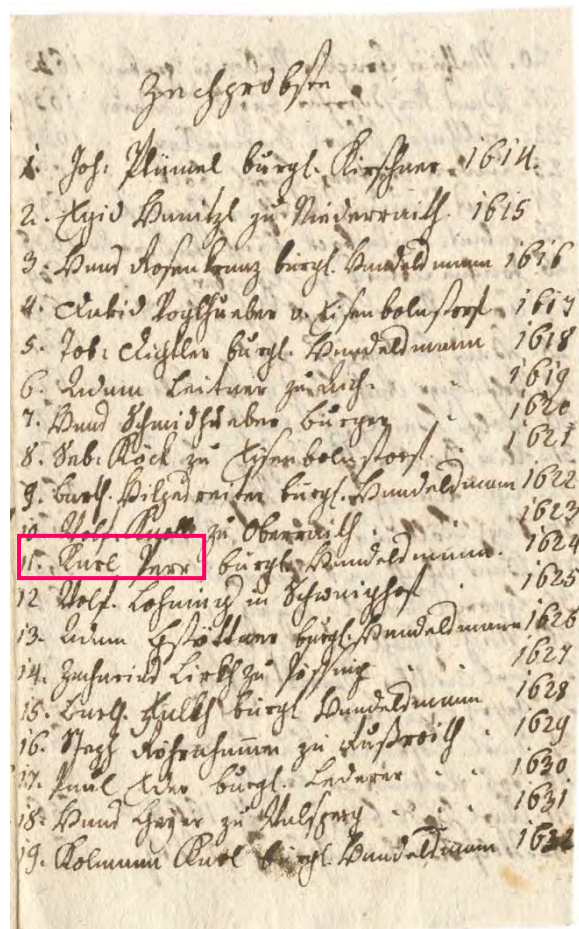 Zechpröbste
1. Joh: Plümel burgl. Kirschner 1614.
2. Egid Hanitzl zu Niederraith. 1615
3. Hans Rosenkranz burgl. Handelsmann 1616
4. David Voglhueber v. Eisenbolnstorf 1617
5. Tob: Richtler burgl. Handelsmann 1618
6. Adam Leitner zu 1619
7. Hans Schmidhueber burger 1620
8. Seb: Köck zu Eisenbolnstorf 1621
9. Barth. burgl. Handelsmann 1622
10 Wolf. zu Oberraith 1623
11. Karl Perr burgl. Handelsmann. 1624
12 Wolf. in Schweighof 1625
13. Adam Gstöttner burgl. Handelsmann 1626
14. Zacharias zu 1627
15. Barth. burgl Handelsmann 1628
16. Steph Rohrhammer zu 1629
17. Paul Eder burgl. Lederer 1630
18. Hans zu 1631
19. Kolmann Karl burgl. Handelsmann 1632